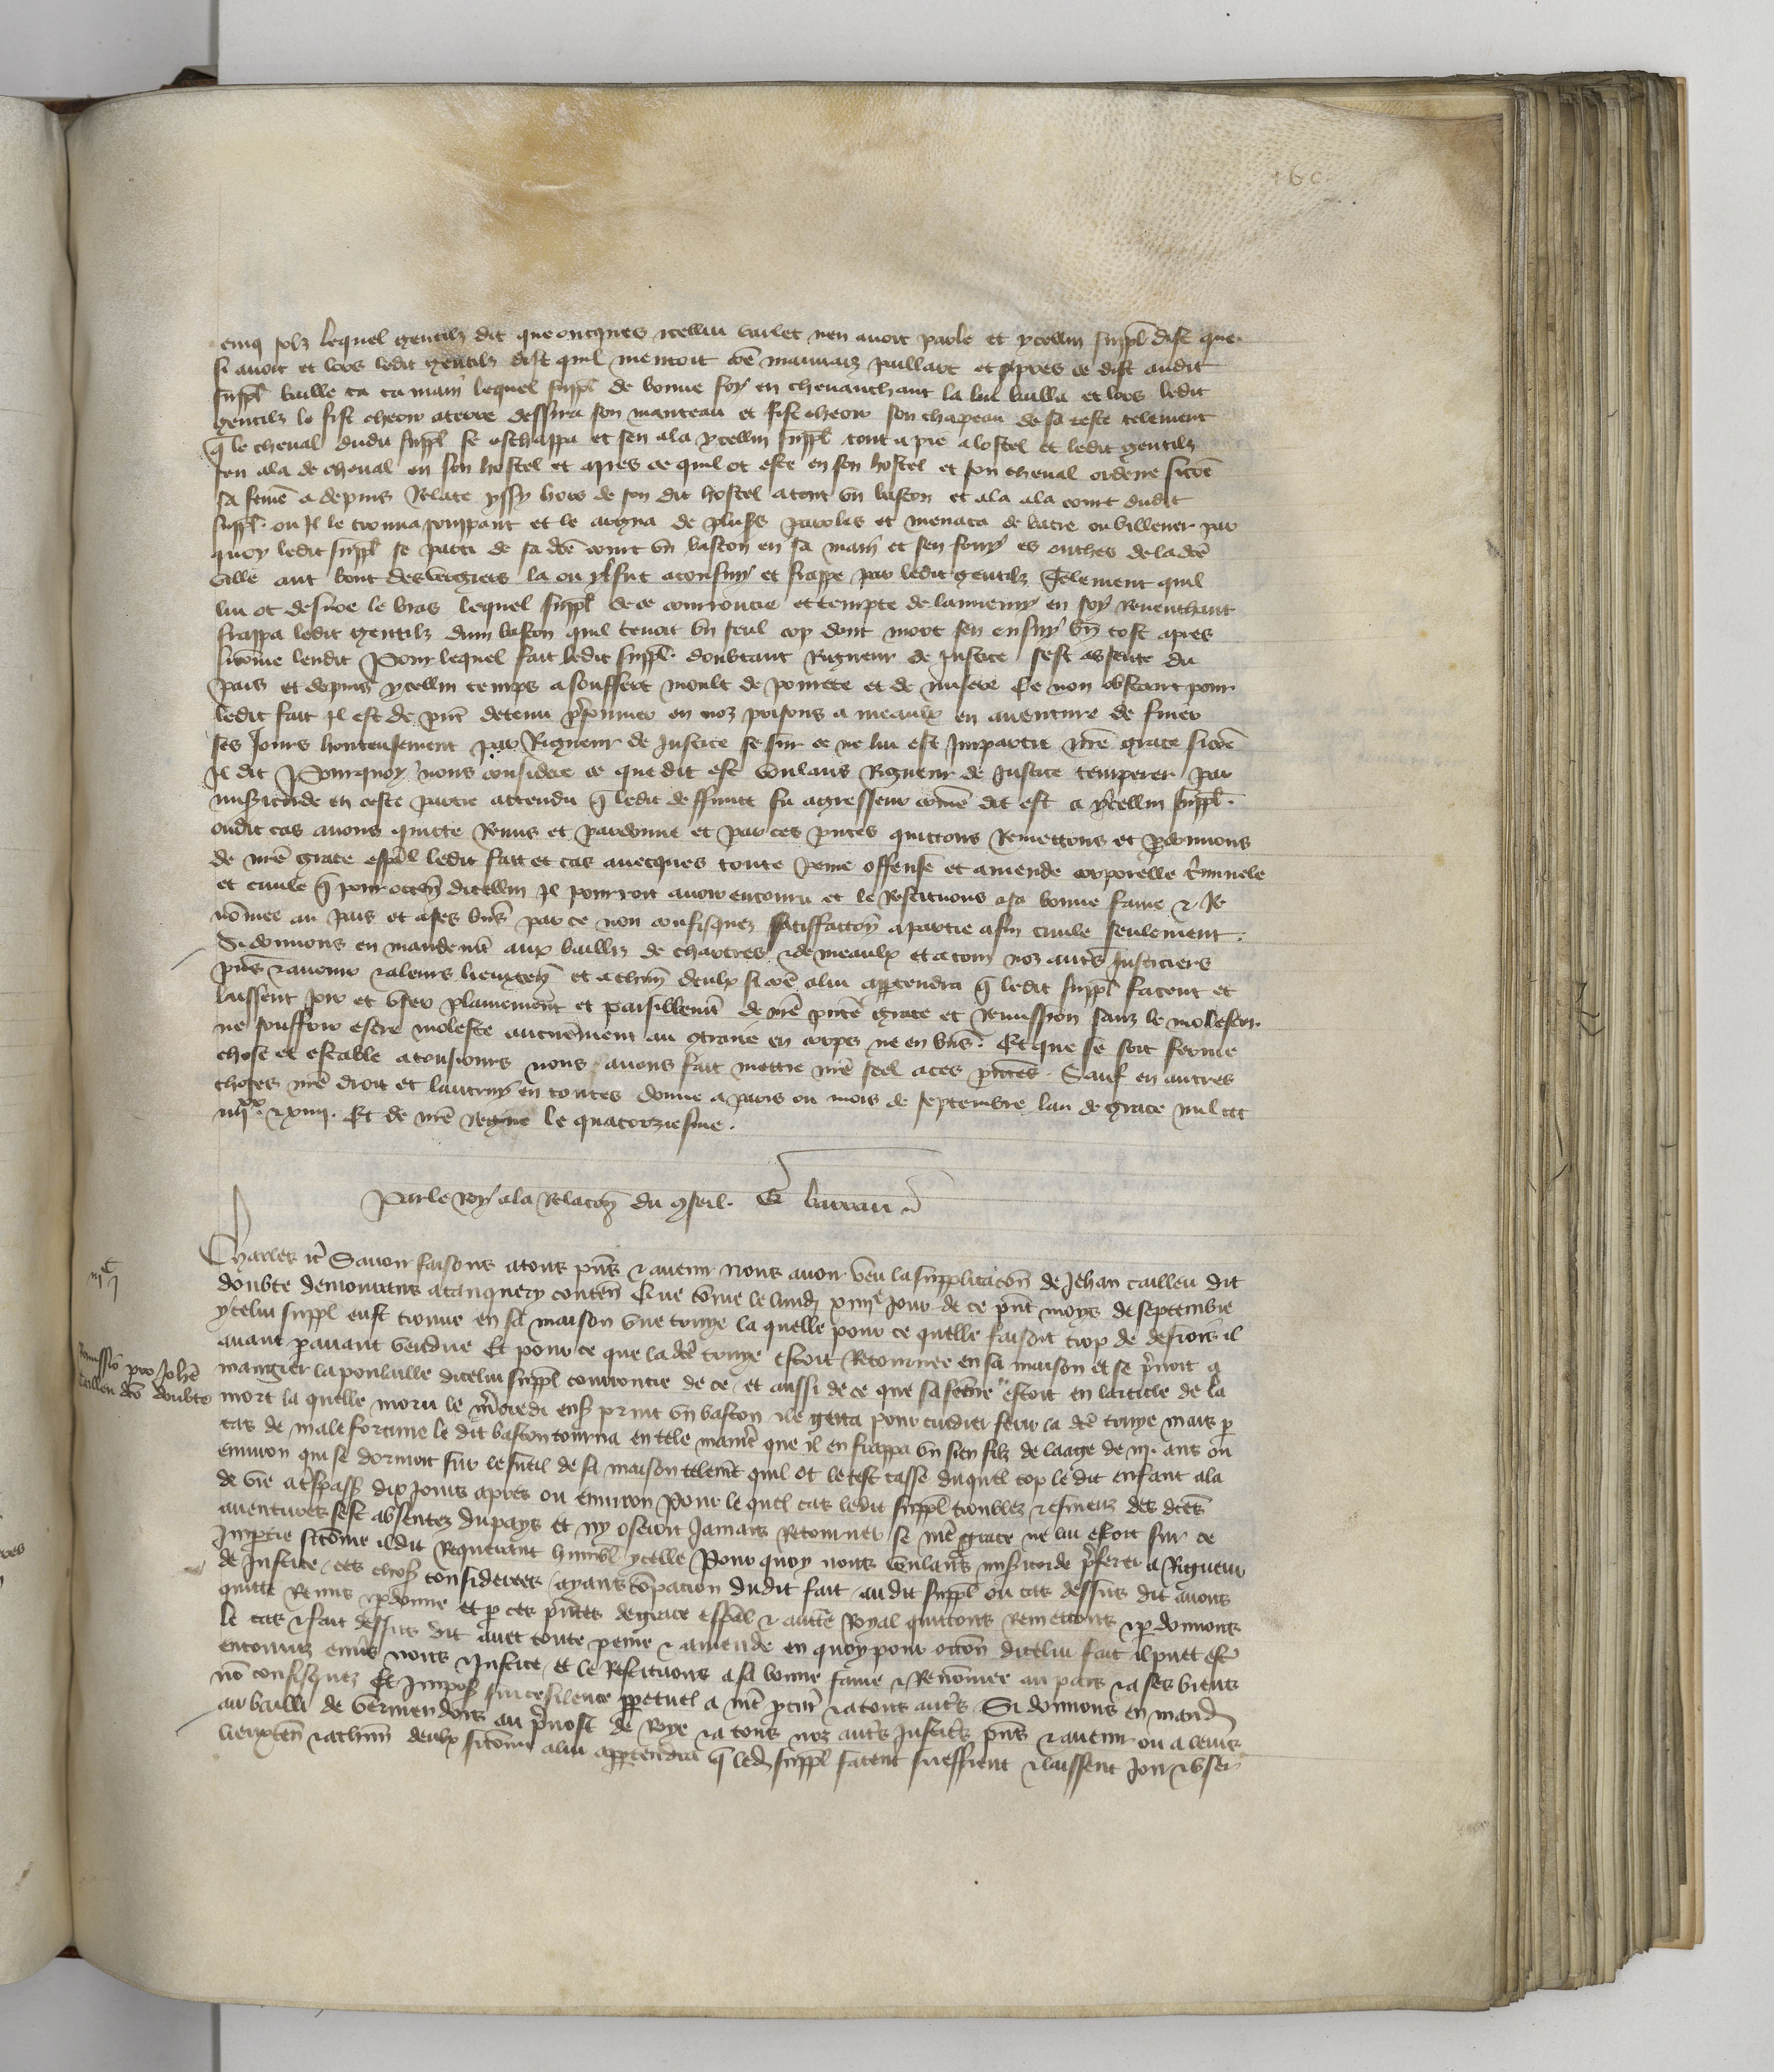 cinq solz lequel gentilz dit que oncques icellui varlet nen avoit parle et ycellui suppl dist que
si avoit et lors ledit gentilz dist quil mentoit come mauvaiz paillart et apres ce dist audit
suppl baille ca ta main lequel suppl de bonne foy en chevauchant la lui bailla et lors ledit
gentilz le fist cheoir a terre dessira son manteau et fist cheoir son chapeau de sa teste telement
q le cheval dudit suppl se eschappa et sen ala ycellui suppl tout a pie a lostel et ledit gentilz
sen ala de cheval en son hostel et apres ce quil ot este en son hostel et son cheval ordene sicoe
sa feme a depuis relate yssy hors de son dit hostel atout un baston et ala a la court dudit
suppl. ou il le trouva soupant et le argua de plus^s paroles et menaca de batre ou villener par
quoy ledit suppl se parti de sa dce court un baston en sa main et sen fouy es ouches de ladce
ville au bout des vergiers la ou yl fut aconsuy et frappe par ledit gentilz telement quil
lui ot desroe le bras lequel suppl de ce courroucie et tempte de lannemy en soy revenchant
frappa ledit gentilz dun baston quil tenoit un seul cop dont mort sen ensuy bn tost apres
sicome lendit Pour lequel fait ledit suppl. doubtant rigueur de justice sest absente du
pais et depuis ycellui temps a souffert moult de povrete et de misere Ce non obstant pour
ledit fait il est de pnt detenu prisonnier en noz prisons a meaulx en aventure de finer
ses jours honteusement par rigueur de justice se sur ce ne lui est impartie nre grace sicoe
il dit Pourquoy nous considere ce que dit est voulans rigueur de justice temperer par
misericorde en ceste partie attendu q ledit deffunct fu agresseur come dit est a ycellui suppl.
oudit cas avons quitte remis et pardonne et par ces pntes quittons remettons et pdonnons
de nre grace espal ledit fait et cas avecques toute peine offense et amende corporelle criminele
et civile q pour occon dicellui il pourroit avoir encouru et le restituons a sa bonne fame & re
nomee au pais et a ses bns par ce non confisquez satisfaccon a partie afin civile seulement.
Si donnons en mandemt aux bailliz de chartres & de meaulx et a touz noz autres justiciers
pns & avenir & a leurs lieuxten et a chun deulx si coe a lui apptendra q ledit suppl facent et
laissent joir et user plainement et paisiblemt de nre pnte grace et remission sanz le molester
ne souffrir estre moleste aucunement au contraire en corps ne en bns. Et que se soit ferme
chose et estable a tousjours nous avons fait mettre nre seel a ces pntes. Sauf en autres
choses nre droit et lautruy en toutes donne a paris ou mois de septembre lan de grace mil ccc
iiij^xx. & xiiij. Et de nre regne le quatorziesme.
Par le roy a la relacon du conseil. G Barrau
Charles &c Savoir faisons a tous pns & avenir nous avoir veu la supplicacon de Jehan cailleu dit
doubte demourans a tanquery conten Que come le lundi xiiij^e jour de ce pnt moys de septembre
ycelui suppl eust trouve en sa maison une truye la quelle pour ce quelle faisoit trop de desrois il
avant pavant vendue Et pour ce que la dce truye estoit retournee en sa maison et se prenoit a
mangier la poulaille dicelui suppl courroucie de ce et aussi de ce que sa feme estoit en larticle de la
mort la quelle moru le mercredi ens print un baston & le getta pour cuidier ferir la dce truye mais p
cas de male fortune le dit baston tourna en tele maniere que il en frappa un sien filz de laage de iij. ans ou
environ qui se dormoit sur le sueil de sa maison telemt quil ot le test casse duquel cop le dit enfant ala
de vie a trespass dix jours apres ou environ Pour le quel cas ledit suppl troublez & esmeuz des dces
aventures sest absentez du pays et ny oseroit jamais retourner se nre grace ne lui estoit sur ce
impartie sicome il dit requerant humbl ycelle Pour quoy nous voulans misericorde preferer a rigueur
de justice ces choses considerees ayans compacion dudit fait au dit suppl ou cas dessus dit avons
quitte remis & pdonne et p ces pntes de grace espal & aucte royal quittons remettons & pdonnons
le cas & fait dessus dit avec toute peine & amende en quoy pour occon dicelui fait il puet est
encouruz envers nous & justice et le restituons a sa bonne fame & renomee au pais & a ses biens
no confisquez Et impos sur ce silence ppetuel a nre pcur & a tous autres Si donnons en mand
au bailli de vermendois au prevost de roye & a tous noz autres justiciers pns & avenir ou a leurs
lieuxten & a chun deulx sicome a lui apptendra q led suppl facent sueffrent & laissent joir & user
Remissio pro Johe
cailleu dco doubte